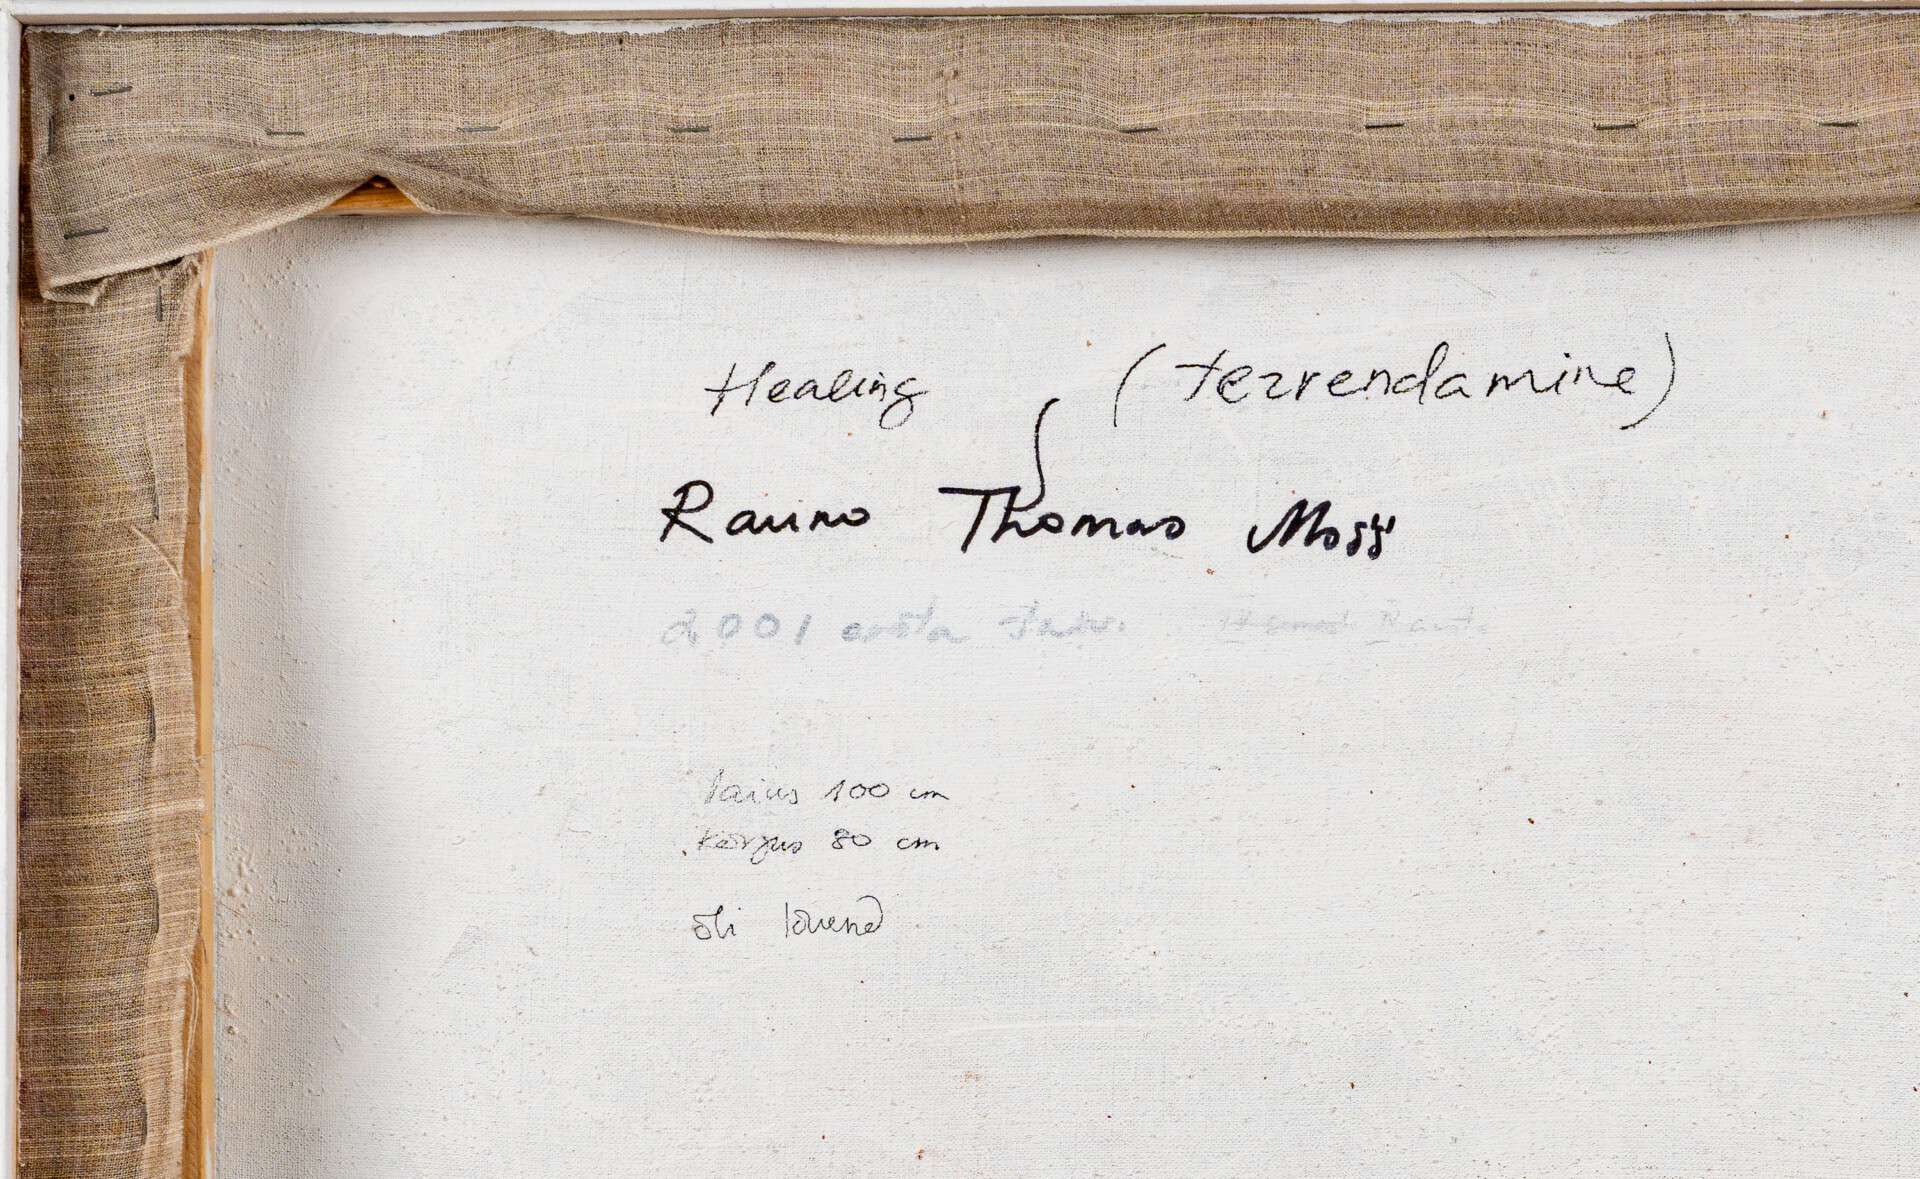 Healing (terrendamine)
Rauno Thomas Moss
2001
laius 100 cm
kõrgus 80 cm
õli lõuend